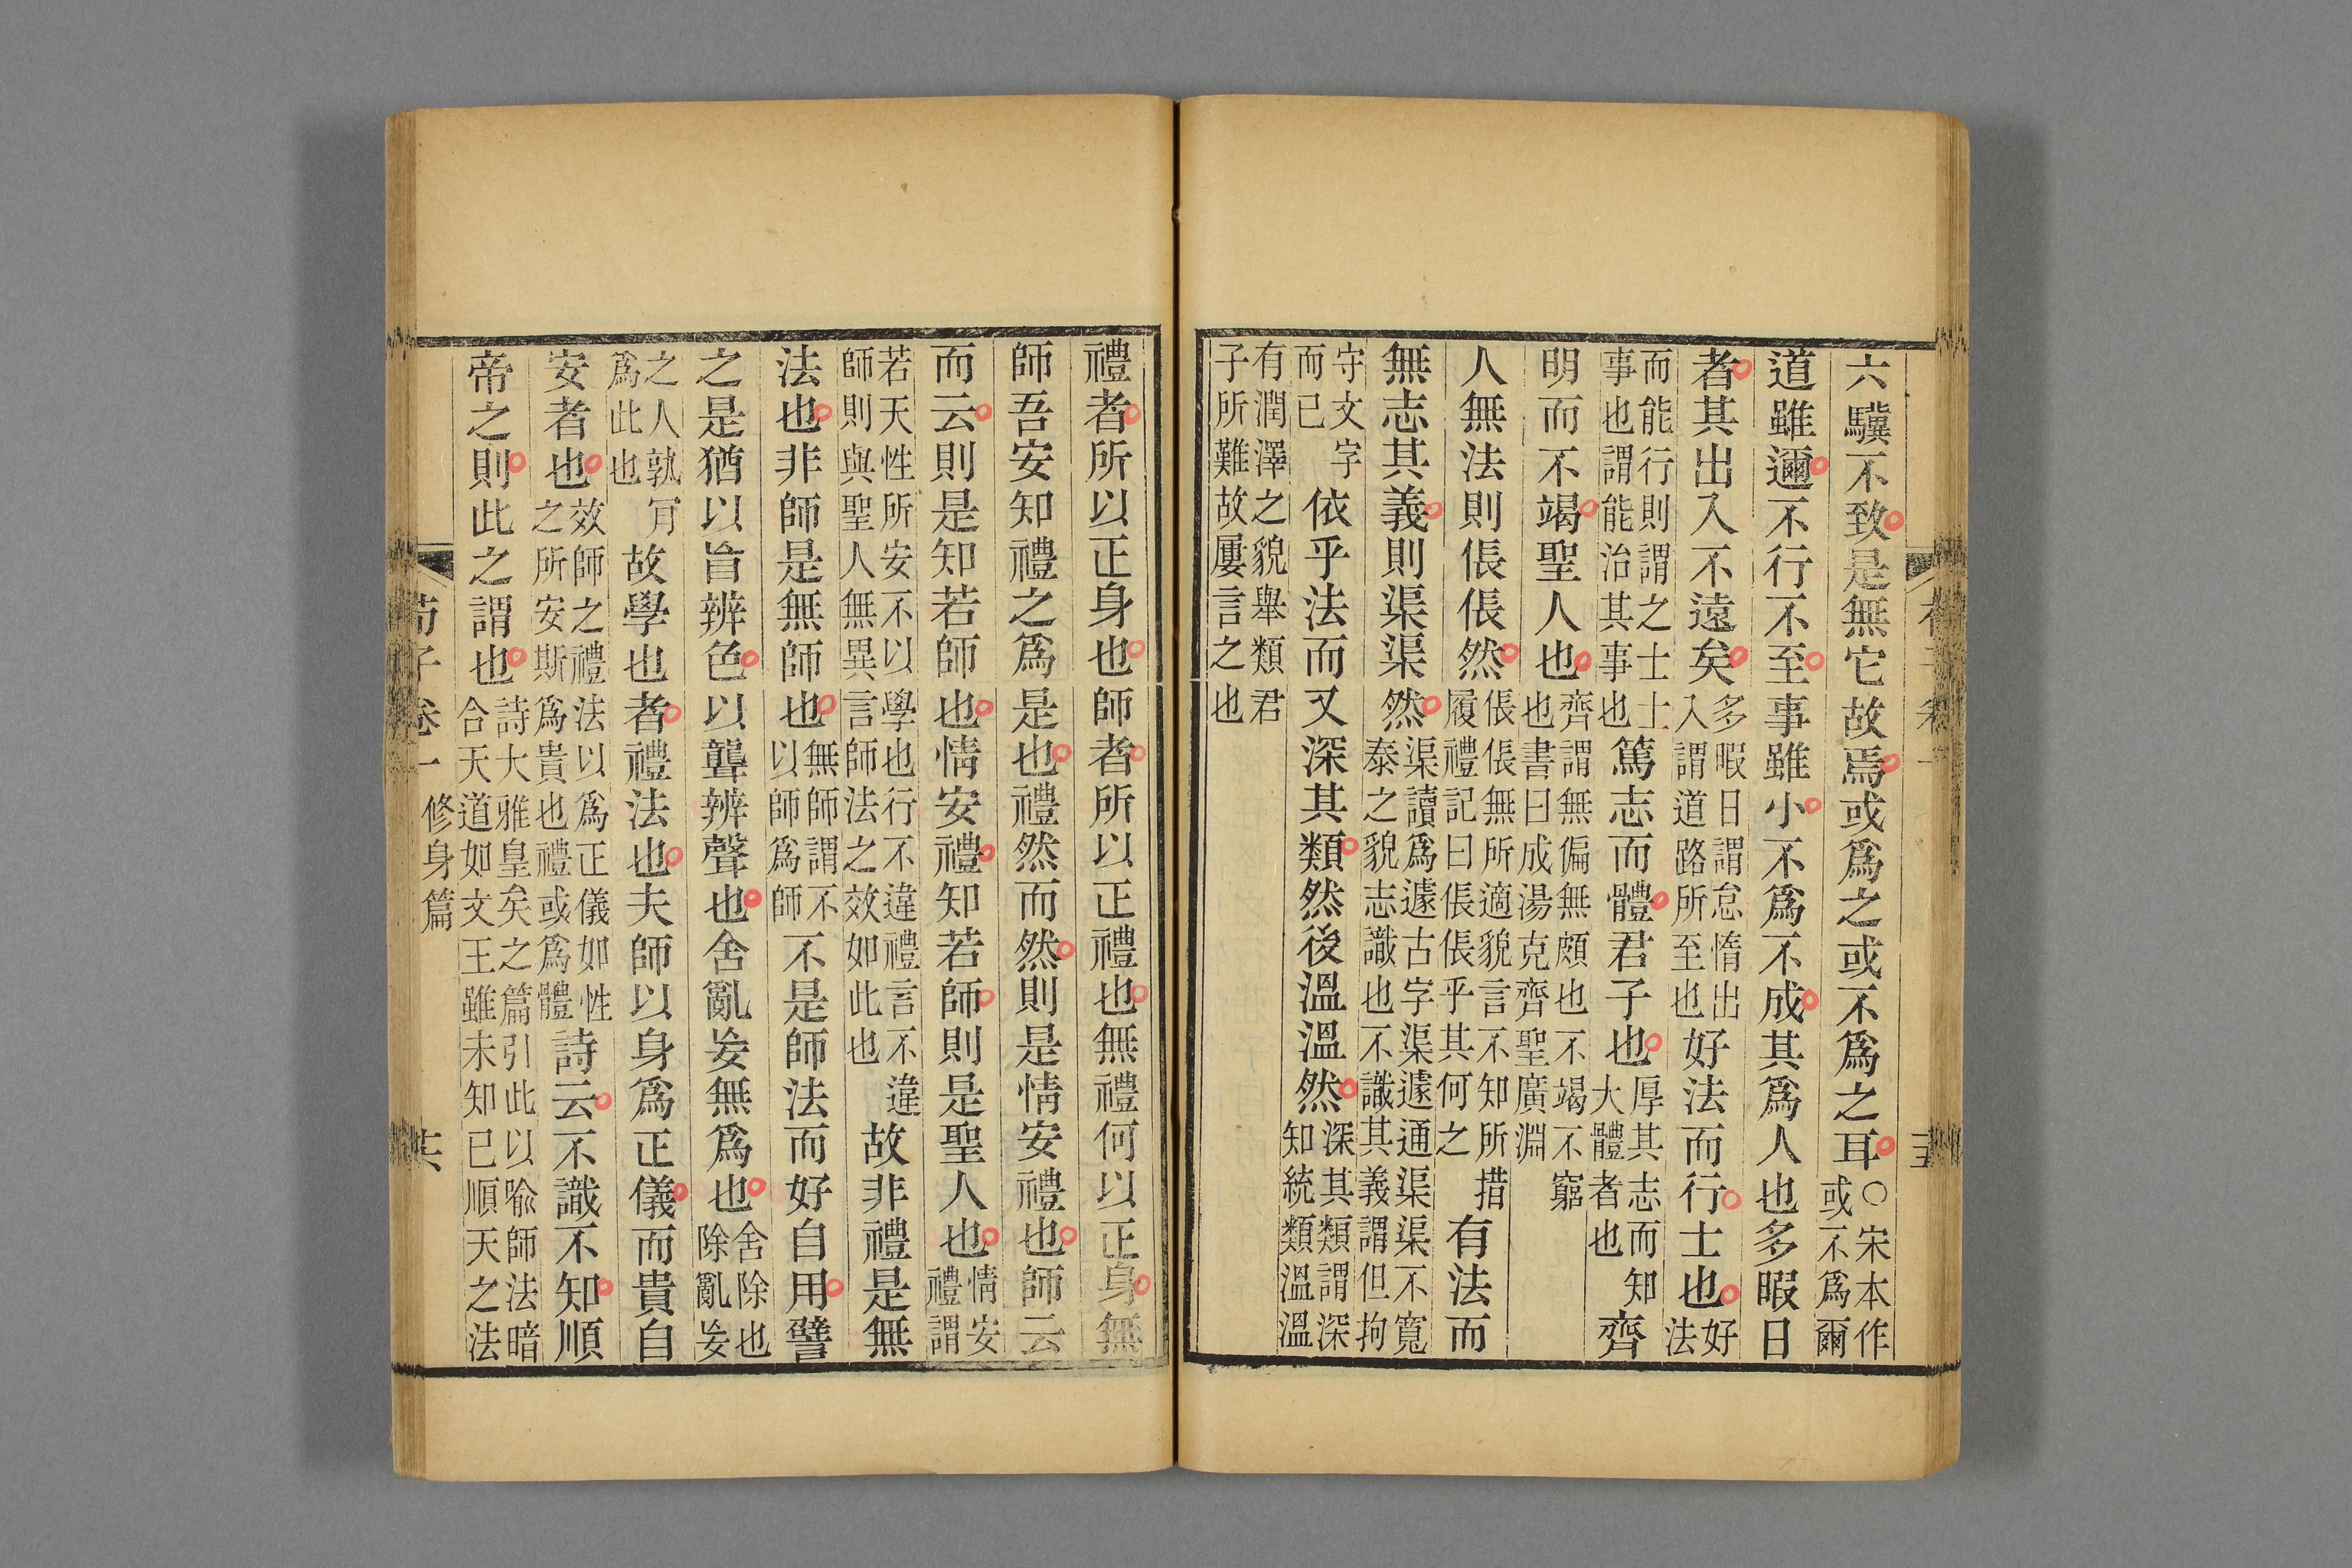 六驥不致是無它故焉或爲之或不爲之耳○宋本作或不爲爾
道雖邇不行不至事雖小不爲不成其爲人也多暇日
者其出入不遠矣多暇日謂怠惰出入謂道路所至也好法而行士也好法
而能行則謂之士士事也謂能治其事也篤志而體君子也厚其志而知大體者也齊
明而不竭聖人也齊謂無偏無頗也不竭不窮也書曰成湯克齊聖廣淵
人無法則倀倀然倀倀無所適貌言不知所措履禮記曰倀倀乎其何之有法而
無志其義則渠渠然渠讀爲遽古字渠遽通渠渠不寬泰之貌志識也不識其義謂但拘
守文字而已依乎法而又深其類然後溫溫然深其類謂深知統類溫溫
有潤澤之貌舉類君子所難故屢言之也
禮者所以正身也師者所以正禮也無禮何以正身無
師吾安知禮之爲是也禮然而然則是情安禮也師云
而云則是知若師也情安禮知若師則是聖人也情安禮謂
若天性所安不以學也行不違禮言不違師則與聖人無異言師法之效如此也故非禮是無
法也非師是無師也無師謂不以師爲師不是師法而好自用譬
之是猶以盲辨色以聾辨聲也舍亂妄無爲也舍除也除亂妄
之人孰肎爲此也故學也者禮法也夫師以身爲正儀而貴自
安者也效師之禮法以爲正儀如性之所安斯爲貴也禮或爲體詩云不識不知順
帝之則此之謂也詩大雅皇矣之篇引此以喻師法暗合天道如文王雖未知已順天之法
荀子卷一 修身篇 共